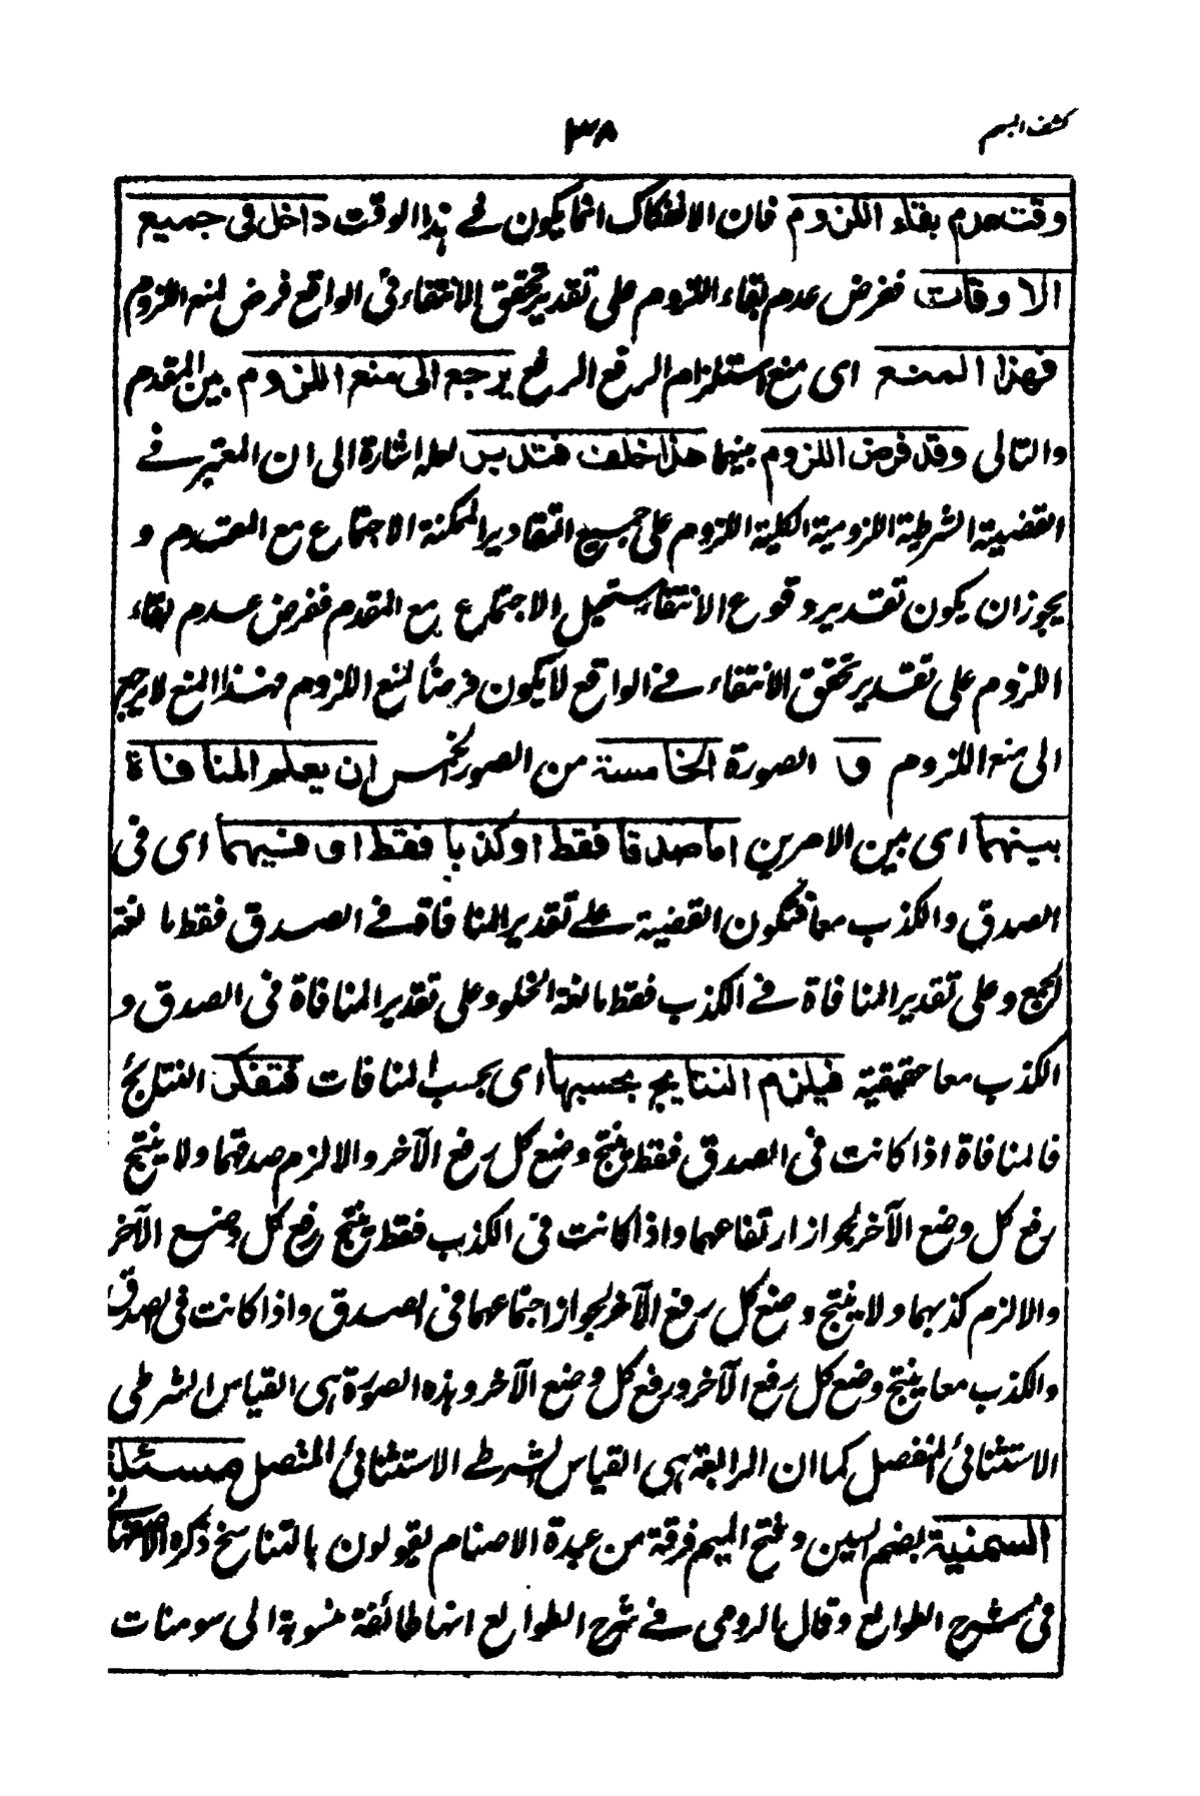 كشف المبهم
٣٨
وقت عدم بقاء اللزوم فان الانفكاك انما يكون فے هذا الوقت داخل فى جميع
الاوقات ففرض عدم بقاء اللزوم على تقدير تحقق الانتفاء فى الواقع فرض لمنع اللزوم
فهذا المنع اى منع استلزام الرفع الرفع يرجع الى منع اللزوم بين المقدم
والتالى وقد فرض اللزوم بينهما هذا خلف فتدبر لعله اشارة الى ان المعتبر فے
القضية الشرطية اللزومية الكلية اللزوم على جميع التقادير الممكنة الاجتماع مع المقدم و
يجوز ان يكون تقدير وقوع الانتفاء مستحيل الاجتماع مع المقدم ففرض عدم بقاء
اللزوم على تقدير تحقق الانتفاء فے الواقع لا يكون فرضاً لمنع اللزوم فهذا المنع لا يرجع
الى منع اللزوم و الصورة الخامسة من الصور الخمس ان يعلم المنافاة
بينهما اى بين الامرين اما صدقا فقط او كذبا فقط او فيهما اى فى
الصدق والكذب معا فتكون القضية علے تقدير المنافاة فے الصدق فقط مانعة
الجمع وعلى تقدير المنافاة فے الكذب فقط مانعة الخلو وعلى تقدير المنافاة فى الصدق و
الكذب معا حقيقية فيلزم النتايج بحسبها اى بحسب المنافات فتفكر النتايج
فالمنافاة اذا كانت فى الصدق فقط ينتج وضع كل رفع الآخر والا لزم صدقهما ولا ينتج
رفع كل وضع الآخر لجواز ارتفاعهما واذا كانت فى الكذب فقط ينتج رفع كل وضع الآخر
والا لزم كذبهما ولا ينتج وضع كل رفع الآخر لجواز اجتماعهما فى الصدق واذا كانت فى الصدق
والكذب معا ينتج وضع كل رفع الآخر ورفع كل وضع الآخر وهذه الصورة هى القياس الشرطى
الاستثنائى المنفصل كما ان الرابعة هى القياس الشرطے الاستثنائى المتصل مسئلة
السمنية بضم السين وفتح الميم فرقة من عبدة الاصنام يقولون بالتناسخ ذكره الاصفهانے
فى شرح الطوالع وقال الرومى فے شرح الطوالع انها طائفة منسوبة الى سومنات